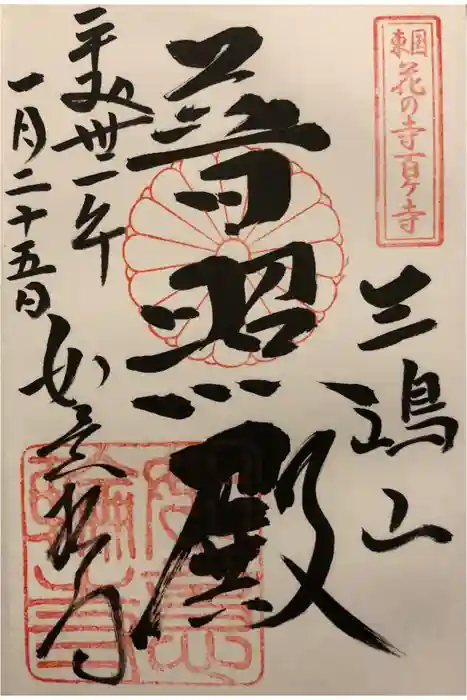 東国
花の寺百ヶ寺
三嶋山
普照殿
平成卅一年
一月二十五日
如意輪寺
如意
輪寺